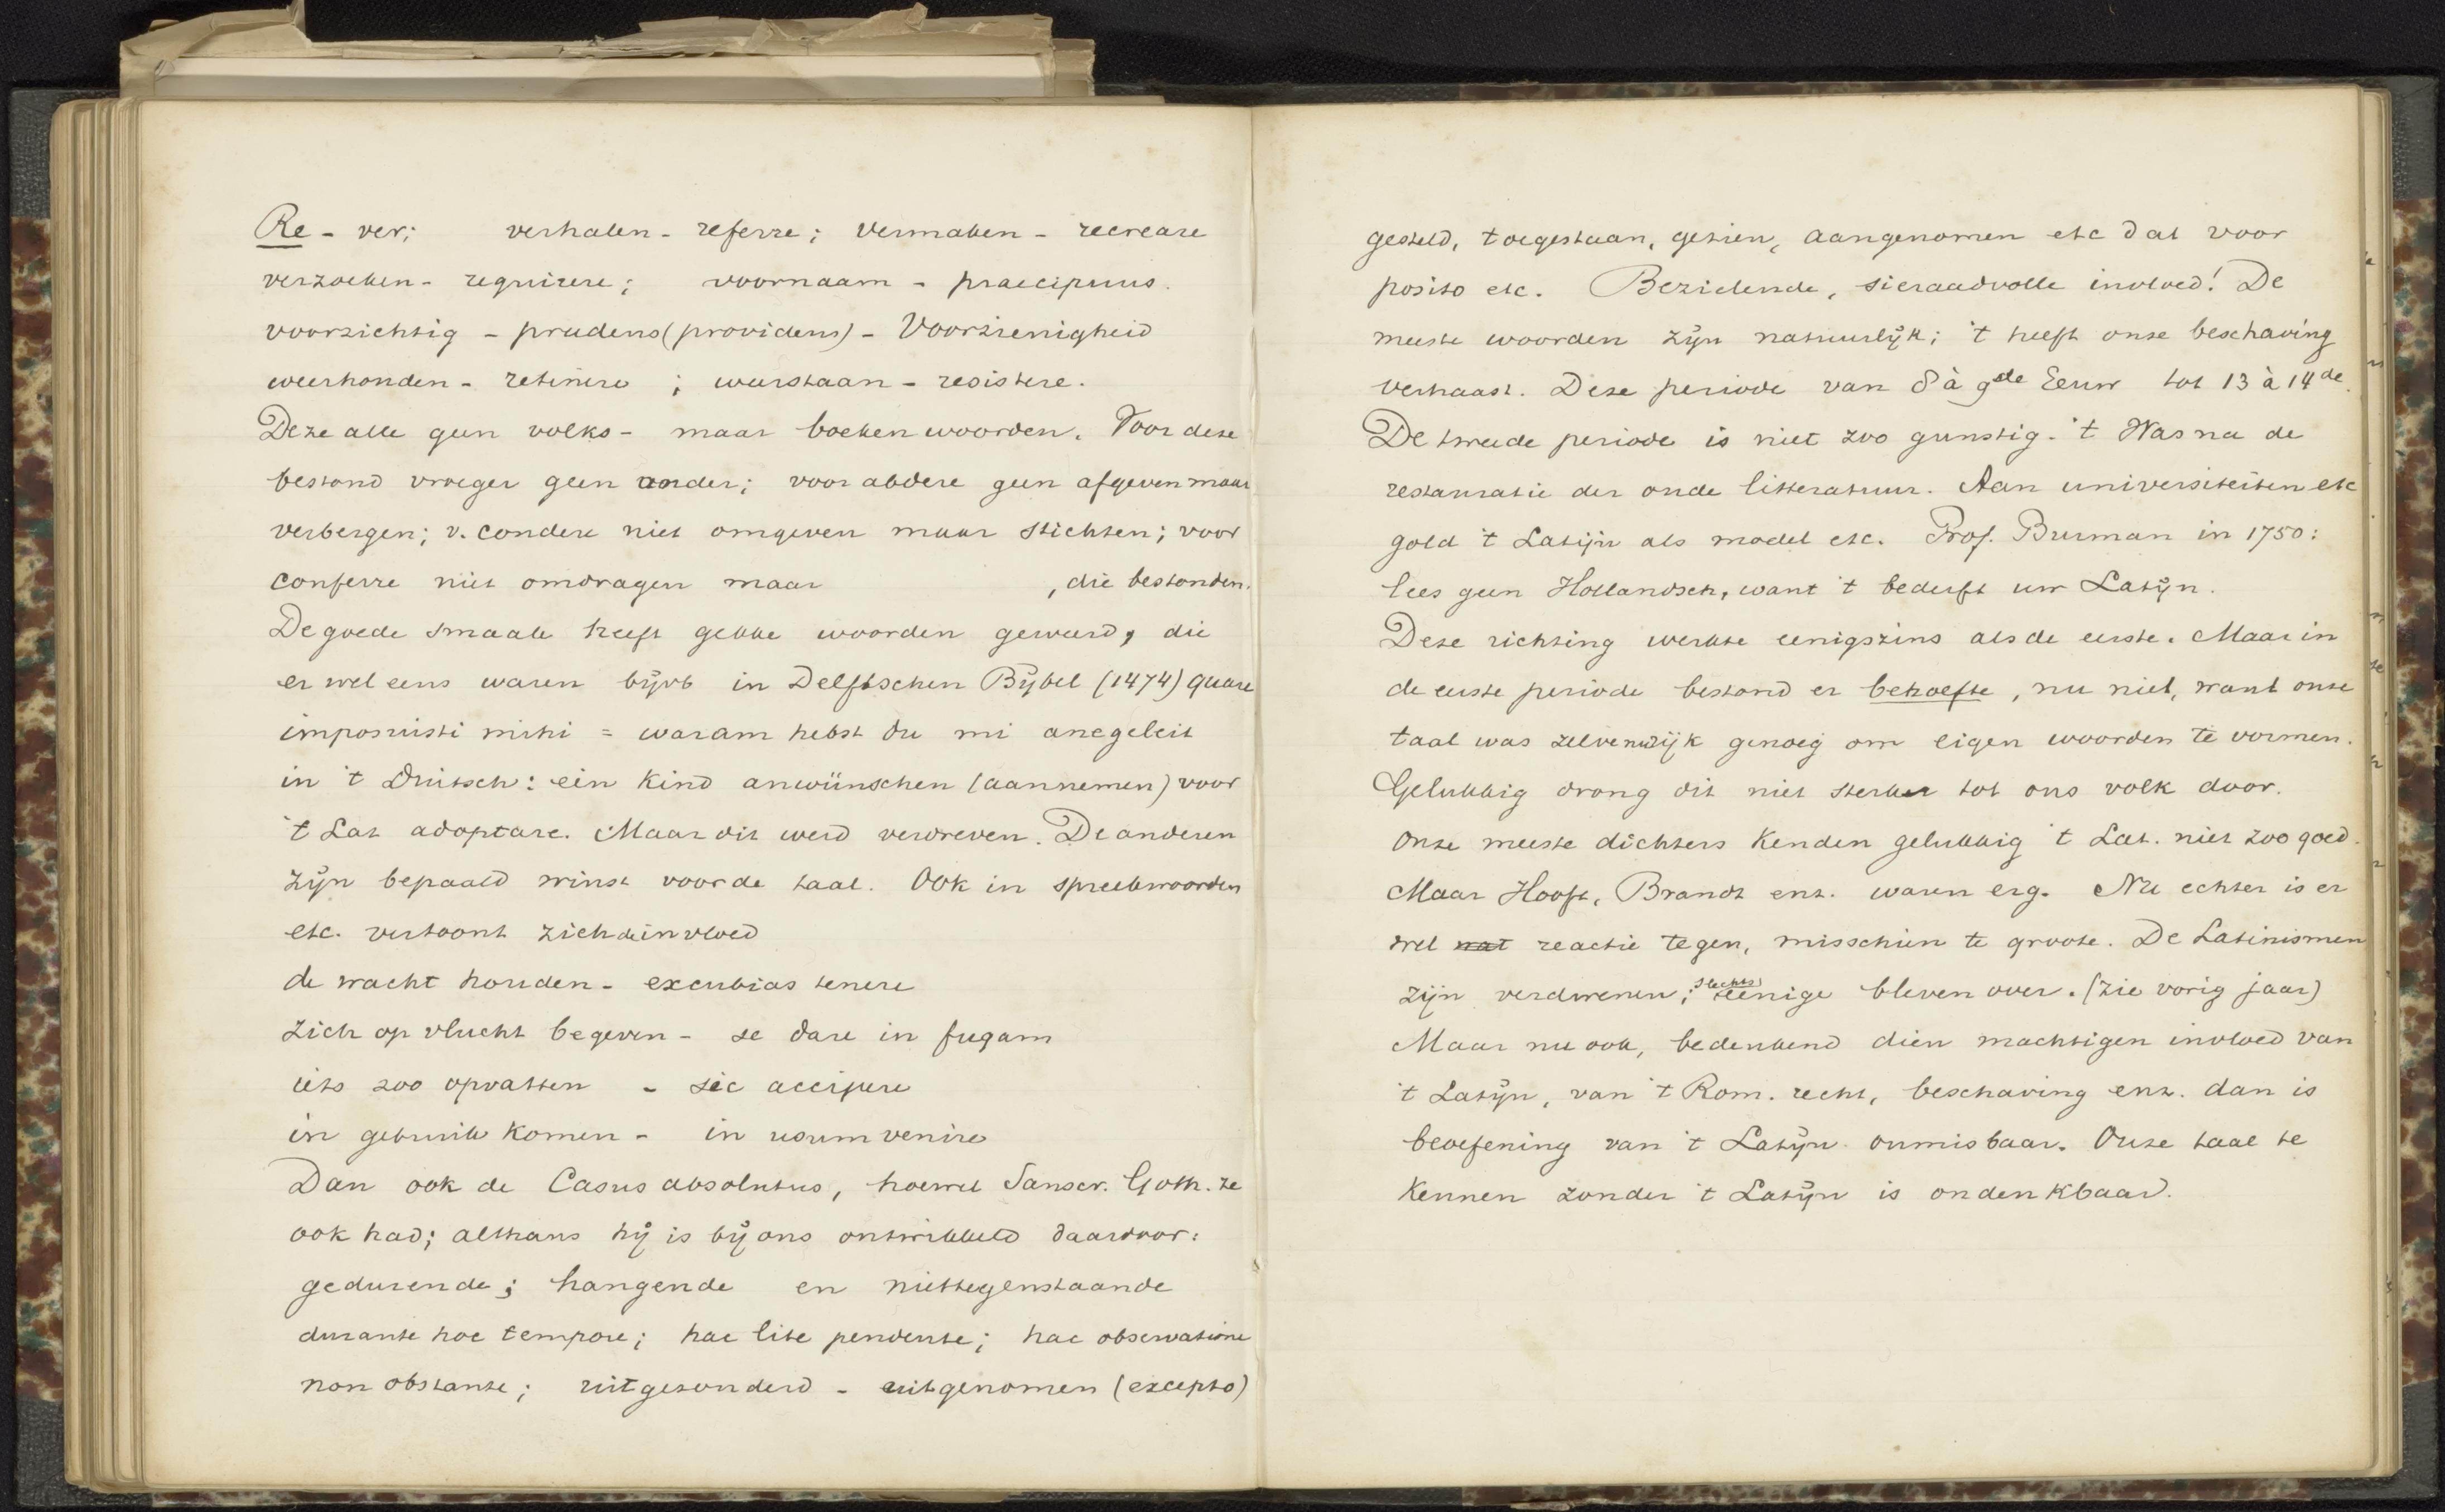 Re - ver; verhalen - referre; vermaken - recreare
verzoeken - requirere; voornaam - praecipuus.
voorzichtig - prudens (providens) - Voorzienigheid
weerhouden - retinere ; weerstaan - resistere.
Deze alle geen volks - maar boekenwoorden. Voor deze
bestond vroeger geen ander; voor abdere geen afgeven maar
verbergen; v. condere niet omgeven maar stichten; voor
conferre niet omdragen maar , die bestonden.
De goede smaak heeft gekke woorden geweerd, die
er wel eens waren bijvb in Delftschen Bijbel (1474) quare
imposuisti mihi = waram hebst du mi anegeleit
in 't Duitsch: ein Kind anwünschen (aannemen) voor
't Lat adoptare. Maar dit werd verdreven. De anderen
zijn bepaald winst voor de taal. Ook in spreekwoorden
etc. vertoont zich de invloed
de wacht houden - excubias tenere
zich op vlucht begeven - se dare in fugam
iets zoo opvatten - sic accipere
in gebruik komen - in usum venire
Dan ook de Casus absolutus, hoewel Sanscr. Goth. ze
ook had; althans hij is bij ons ontwikkeld daardoor:
gedurende; hangende en niettegenstaande
durante hoc tempore; hac lite pendente; hac observatione
non obstante; uitgezonderd - uitgenomen (excepto)
gesteld, toegestaan, gezien, aangenomen etc dat voor
posito etc. Bezielende, sieraadvolle invloed! De
meeste woorden zijn natuurlijk; 't heeft onze beschaving
verhaast. Deze periode van 8 à 9de Eeuw tot 13 à 14de.
De tweede periode is niet zoo gunstig. 't Was na de
restauratie der oude litteratuur. Aan universiteiten etc
gold 't Latijn als model etc. Prof. Burman in 1750:
lees geen Hollandsch, want 't bederft uw Latijn.
Deze richting werkte eenigszins als de eerste. Maar in
de eerste periode bestond er behoefte, nu niet, want onze
taal was zelve rijk genoeg om eigen woorden te vormen.
Gelukkig drong dit niet sterker tot ons volk door.
Onze meeste dichters kenden gelukkig 't Lat. niet zoo goed.
Maar Hooft, Brandt enz. waren erg. Nu echter is er
wel wat reactie tegen, misschien te groote. De Latinismen
zijn verdwenen; slechts eenige bleven over. (zie vorig jaar)
Maar nu ook, bedenkend dien machtigen invloed van
't Latijn, van 't Rom. recht, beschaving enz. dan is
beoefening van 't Latijn onmisbaar. Onze taal te
kennen zonder 't Latijn is ondenkbaar.